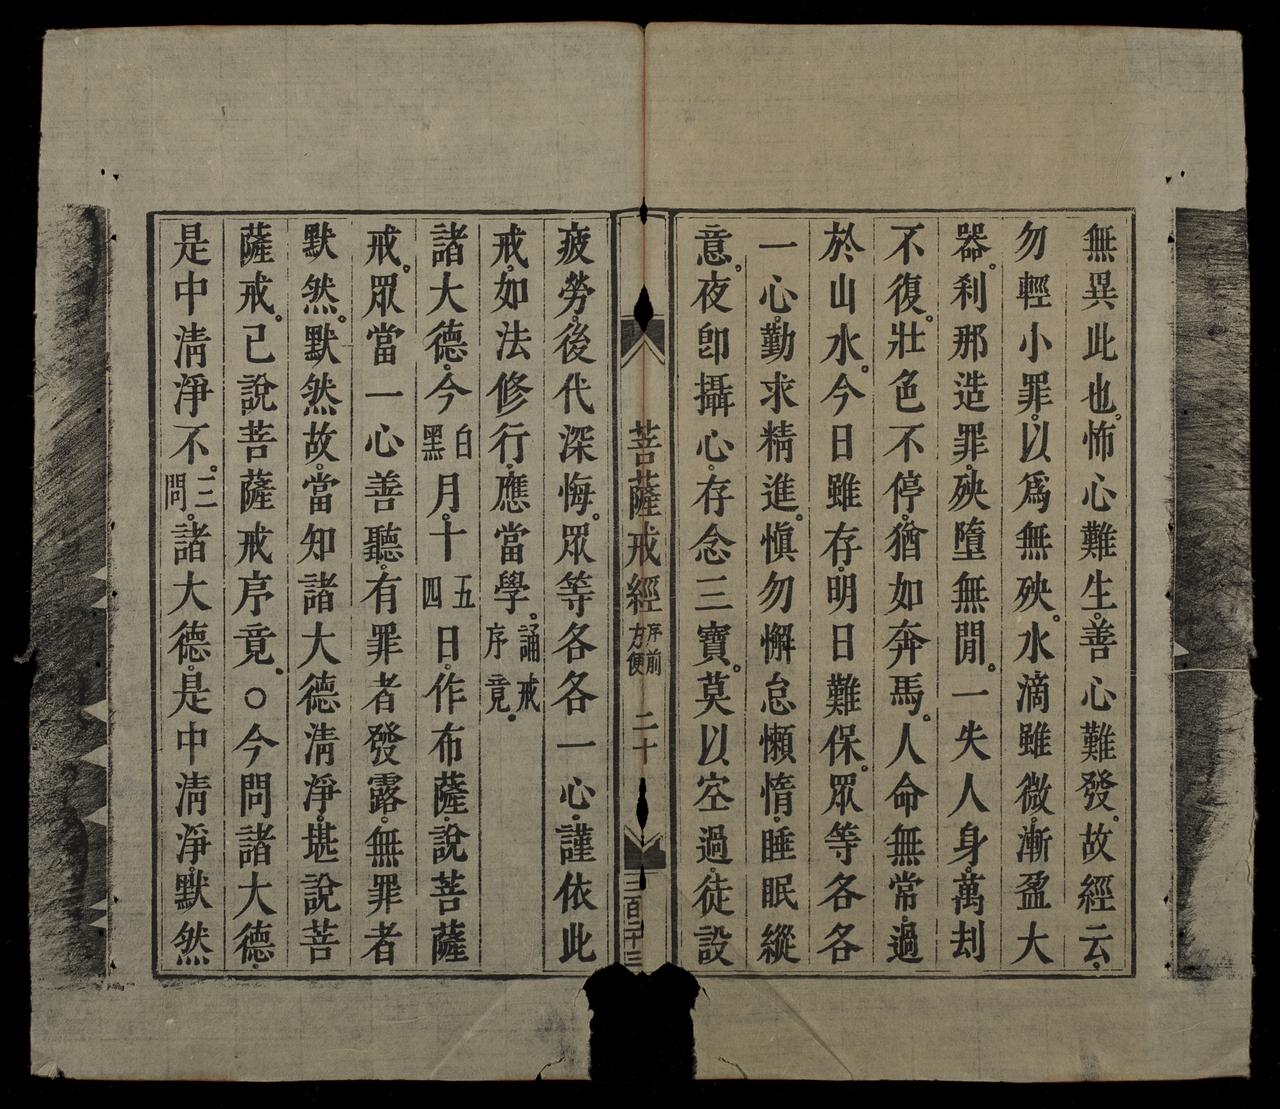 無異此也。怖心難生。善心難發。故經云。
勿輕小罪。以爲無殃。水滴雖微。漸盈大
器。刹那造罪。殃墮無閒。一失人身。萬刦
不復。壯色不停。猶如奔馬。人命無常。過
於山水。今日雖存。明日難保。眾等各各
一心。勤求精進。愼勿懈怠懶惰。睡眠縱
意。夜卽攝心。存念三寶。莫以空過。徒設
菩薩戒經 序前方便 二十 三百二十三
疲勞。後代深悔。眾等各各一心。謹依此
戒。如法修行。應當學。誦戒序竟。
諸大德。今白黑月。十五四日。作布薩。說菩薩
戒。眾當一心善聽。有罪者發露。無罪者
默然。默然故。當知諸大德清淨。堪說菩
薩戒。已說菩薩戒序竟。○今問諸大德。
是中清淨不。三問。諸大德。是中清淨。默然